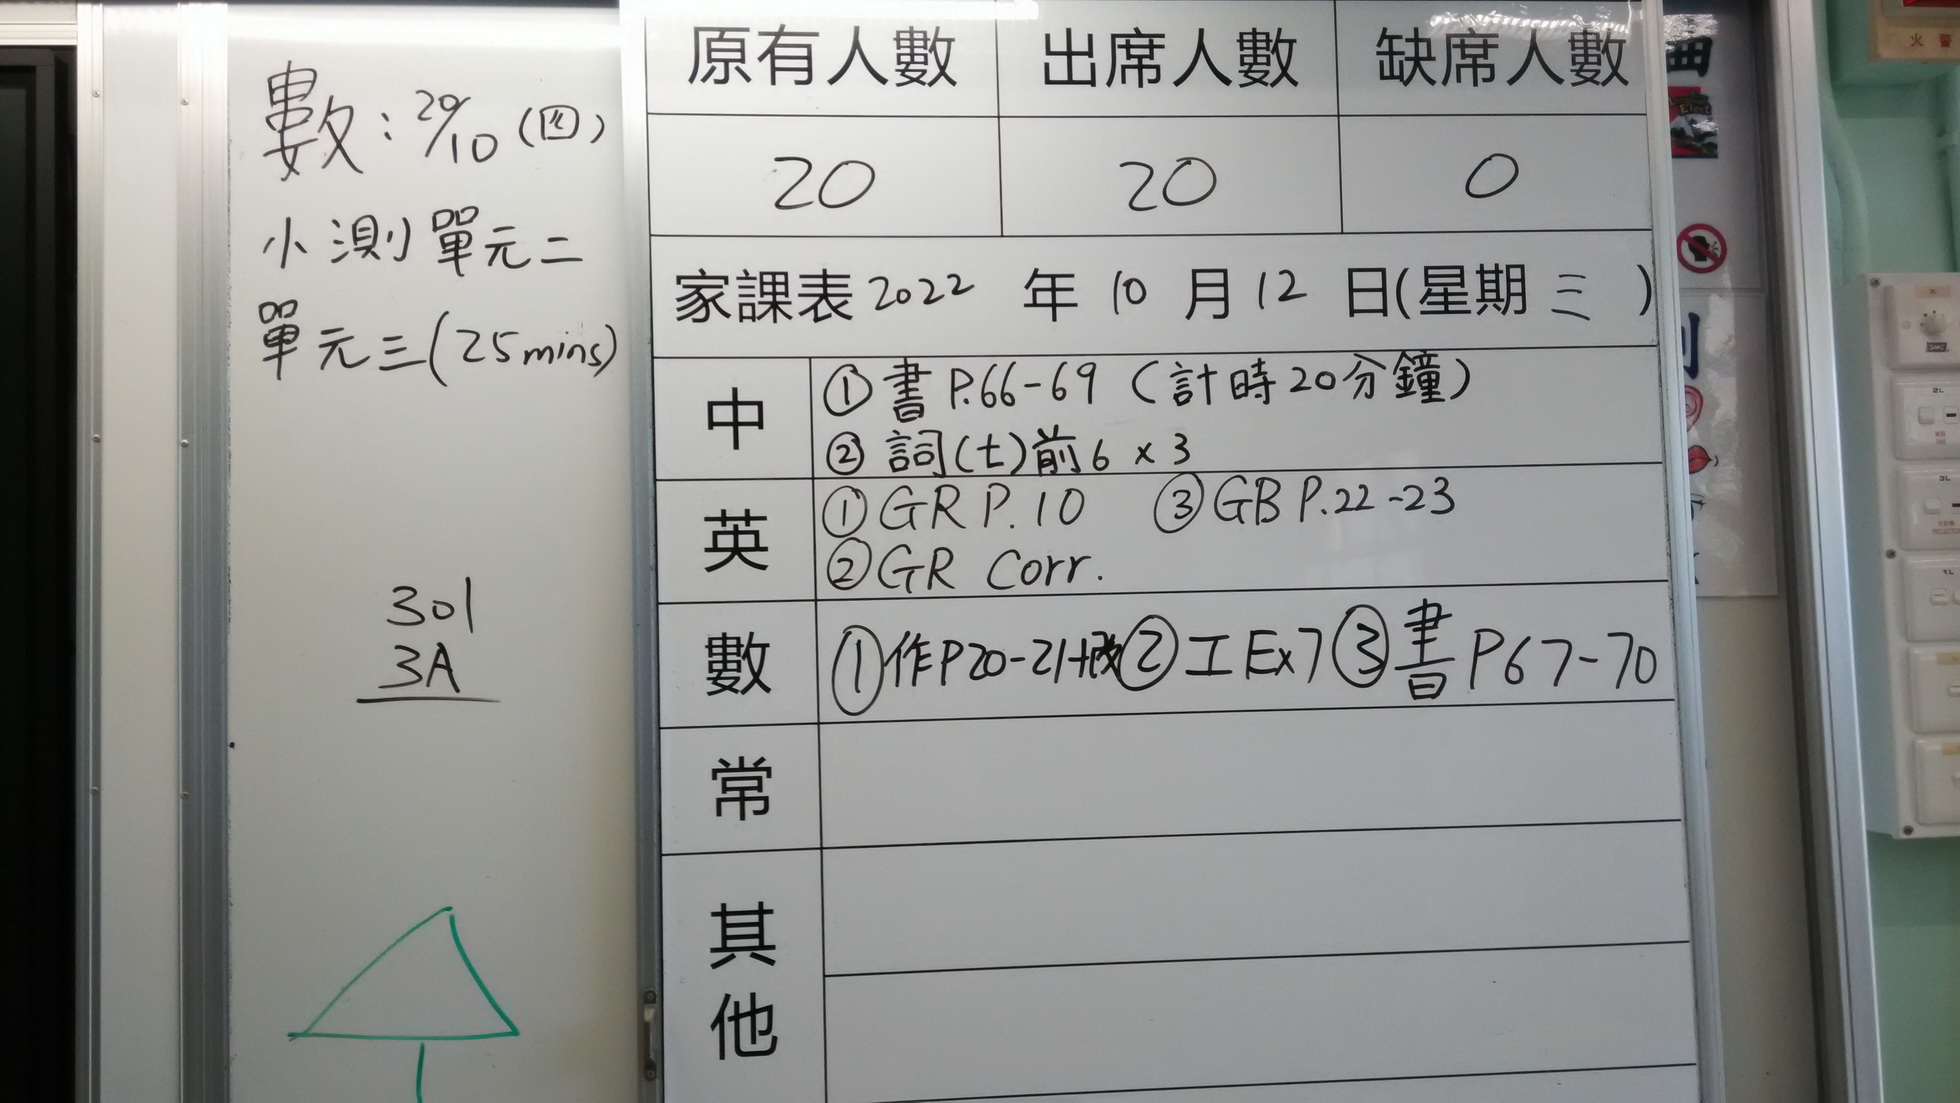 數：20/10（四）
小測單元二
單元三（25mins）
301
3A
原有人數 出席人數 缺席人數
20 20 0
家課表2022 年 10 月 12 日(星期 三 )
中 ① 書 P.66-69（計時20分鐘）
② 詞(七)前6 x 3
英 ① GR P.10 ③ GB P.22-23
② GR Corr.
數 ① 作P20-21+改 ② 工 Ex7 ③ 書 P67-70
常
其他
火 警